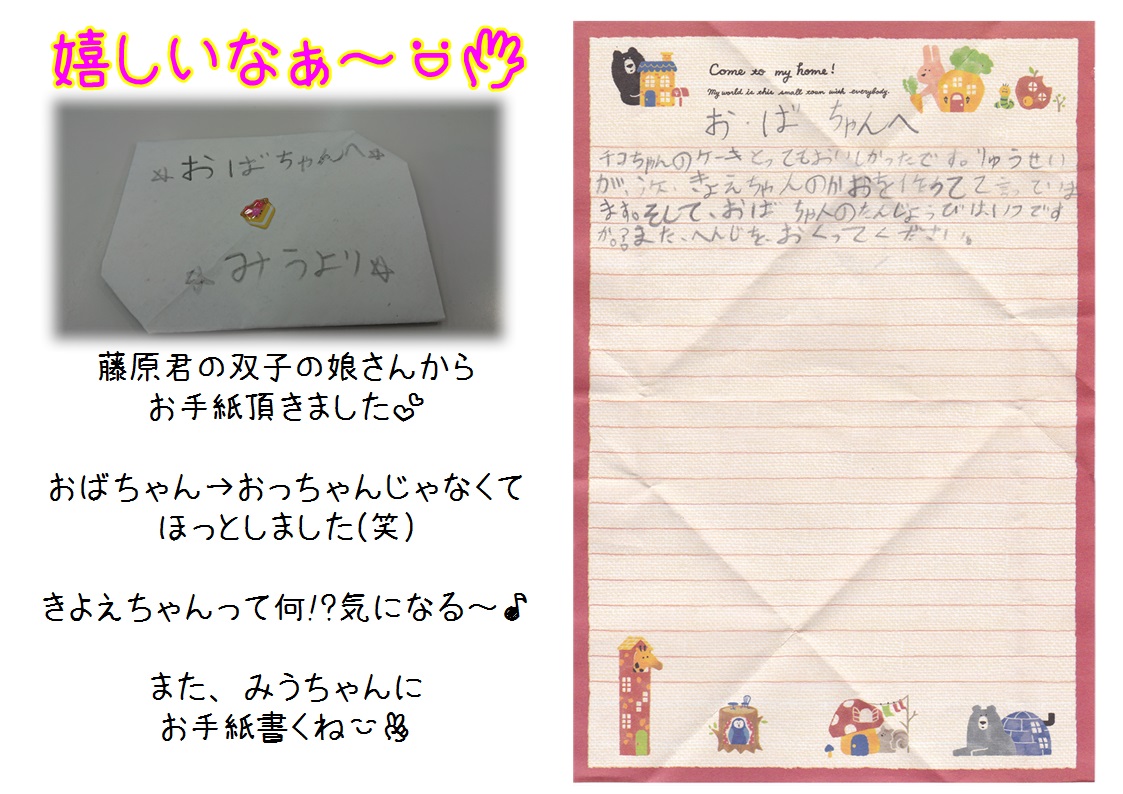 嬉しいなぁ～
☆おばちゃんへ☆
☆みうより☆
藤原君の双子の娘さんから
お手紙頂きました
おばちゃん→おっちゃんじゃなくて
ほっとしました(笑)
きよえちゃんって何!?気になる～♪
また、みうちゃんに
お手紙書くね
Come to my home!
My world is this small town with everybody.
お・ばちゃんへ
チコちゃんのケーキとってもおいしかったです。りゅうせい
が、次、きょえちゃんのかおを作ってって言っていま
ます。そして、おばちゃんのたんじょうびはいつです
か。？また、へんじを、おくってください。